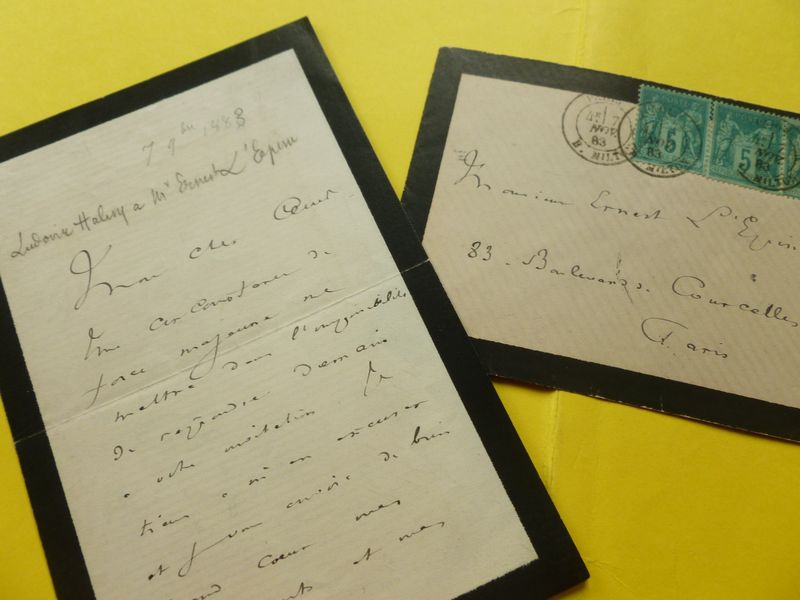 7 1883
Ludovic Halévy a Mr Ernest L'Epine
Mon cher
Une circonstance de
force majeure me
mettre dans l'impossibilité
de répondre demain
a votre invitation. Je
tiens a m'en excuser
et je vous envoie de bien
grand cœur mes
et mes
PARIS
7
83
R. MILTON
5
5
Monsieur Ernest L'Epine
83. Boulevard de Courcelles
Paris